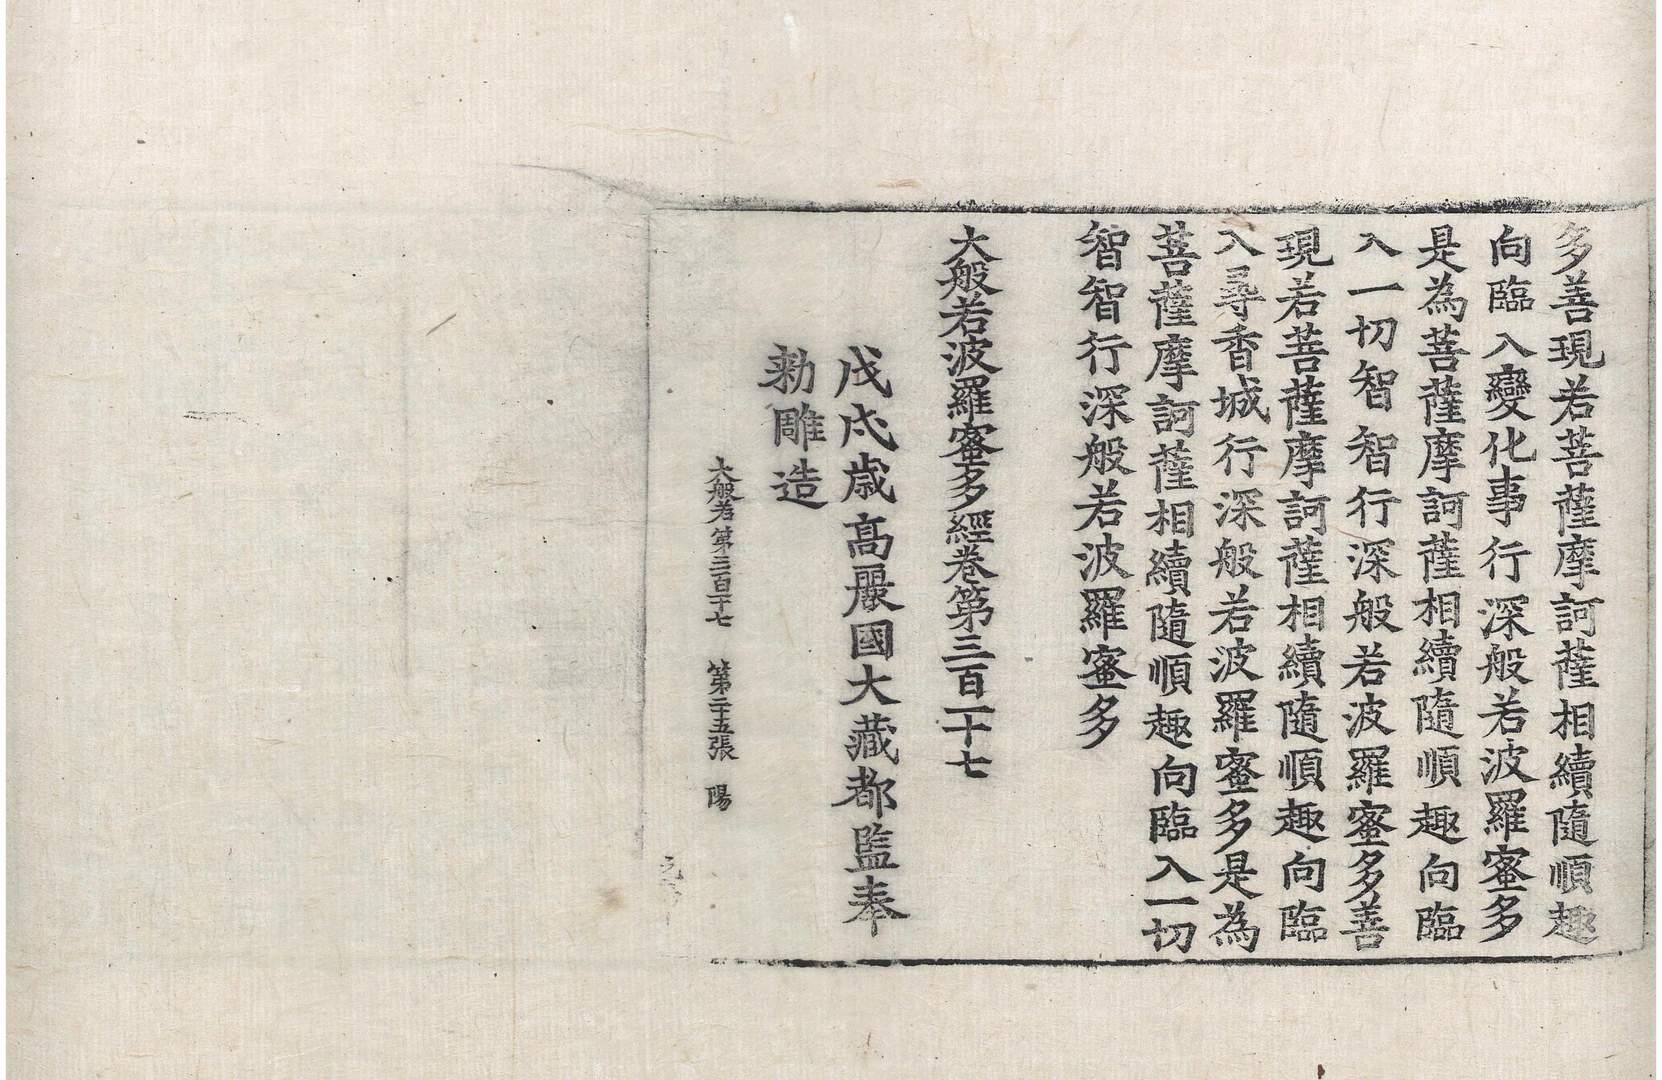 多善現若菩薩摩訶薩相續隨順趣
向臨入變化事行深般若波羅蜜多
是為菩薩摩訶薩相續隨順趣向臨
入一切智智行深般若波羅蜜多善
現若菩薩摩訶薩相續隨順趣向臨
入尋香城行深般若波羅蜜多是為
菩薩摩訶薩相續隨順趣向臨入一切
智智行深般若波羅蜜多
大般若波羅蜜多經卷第三百二十七
戊戌歲高麗國大藏都監奉
勅雕造
大般若第三百二十七 第二十五張 陽